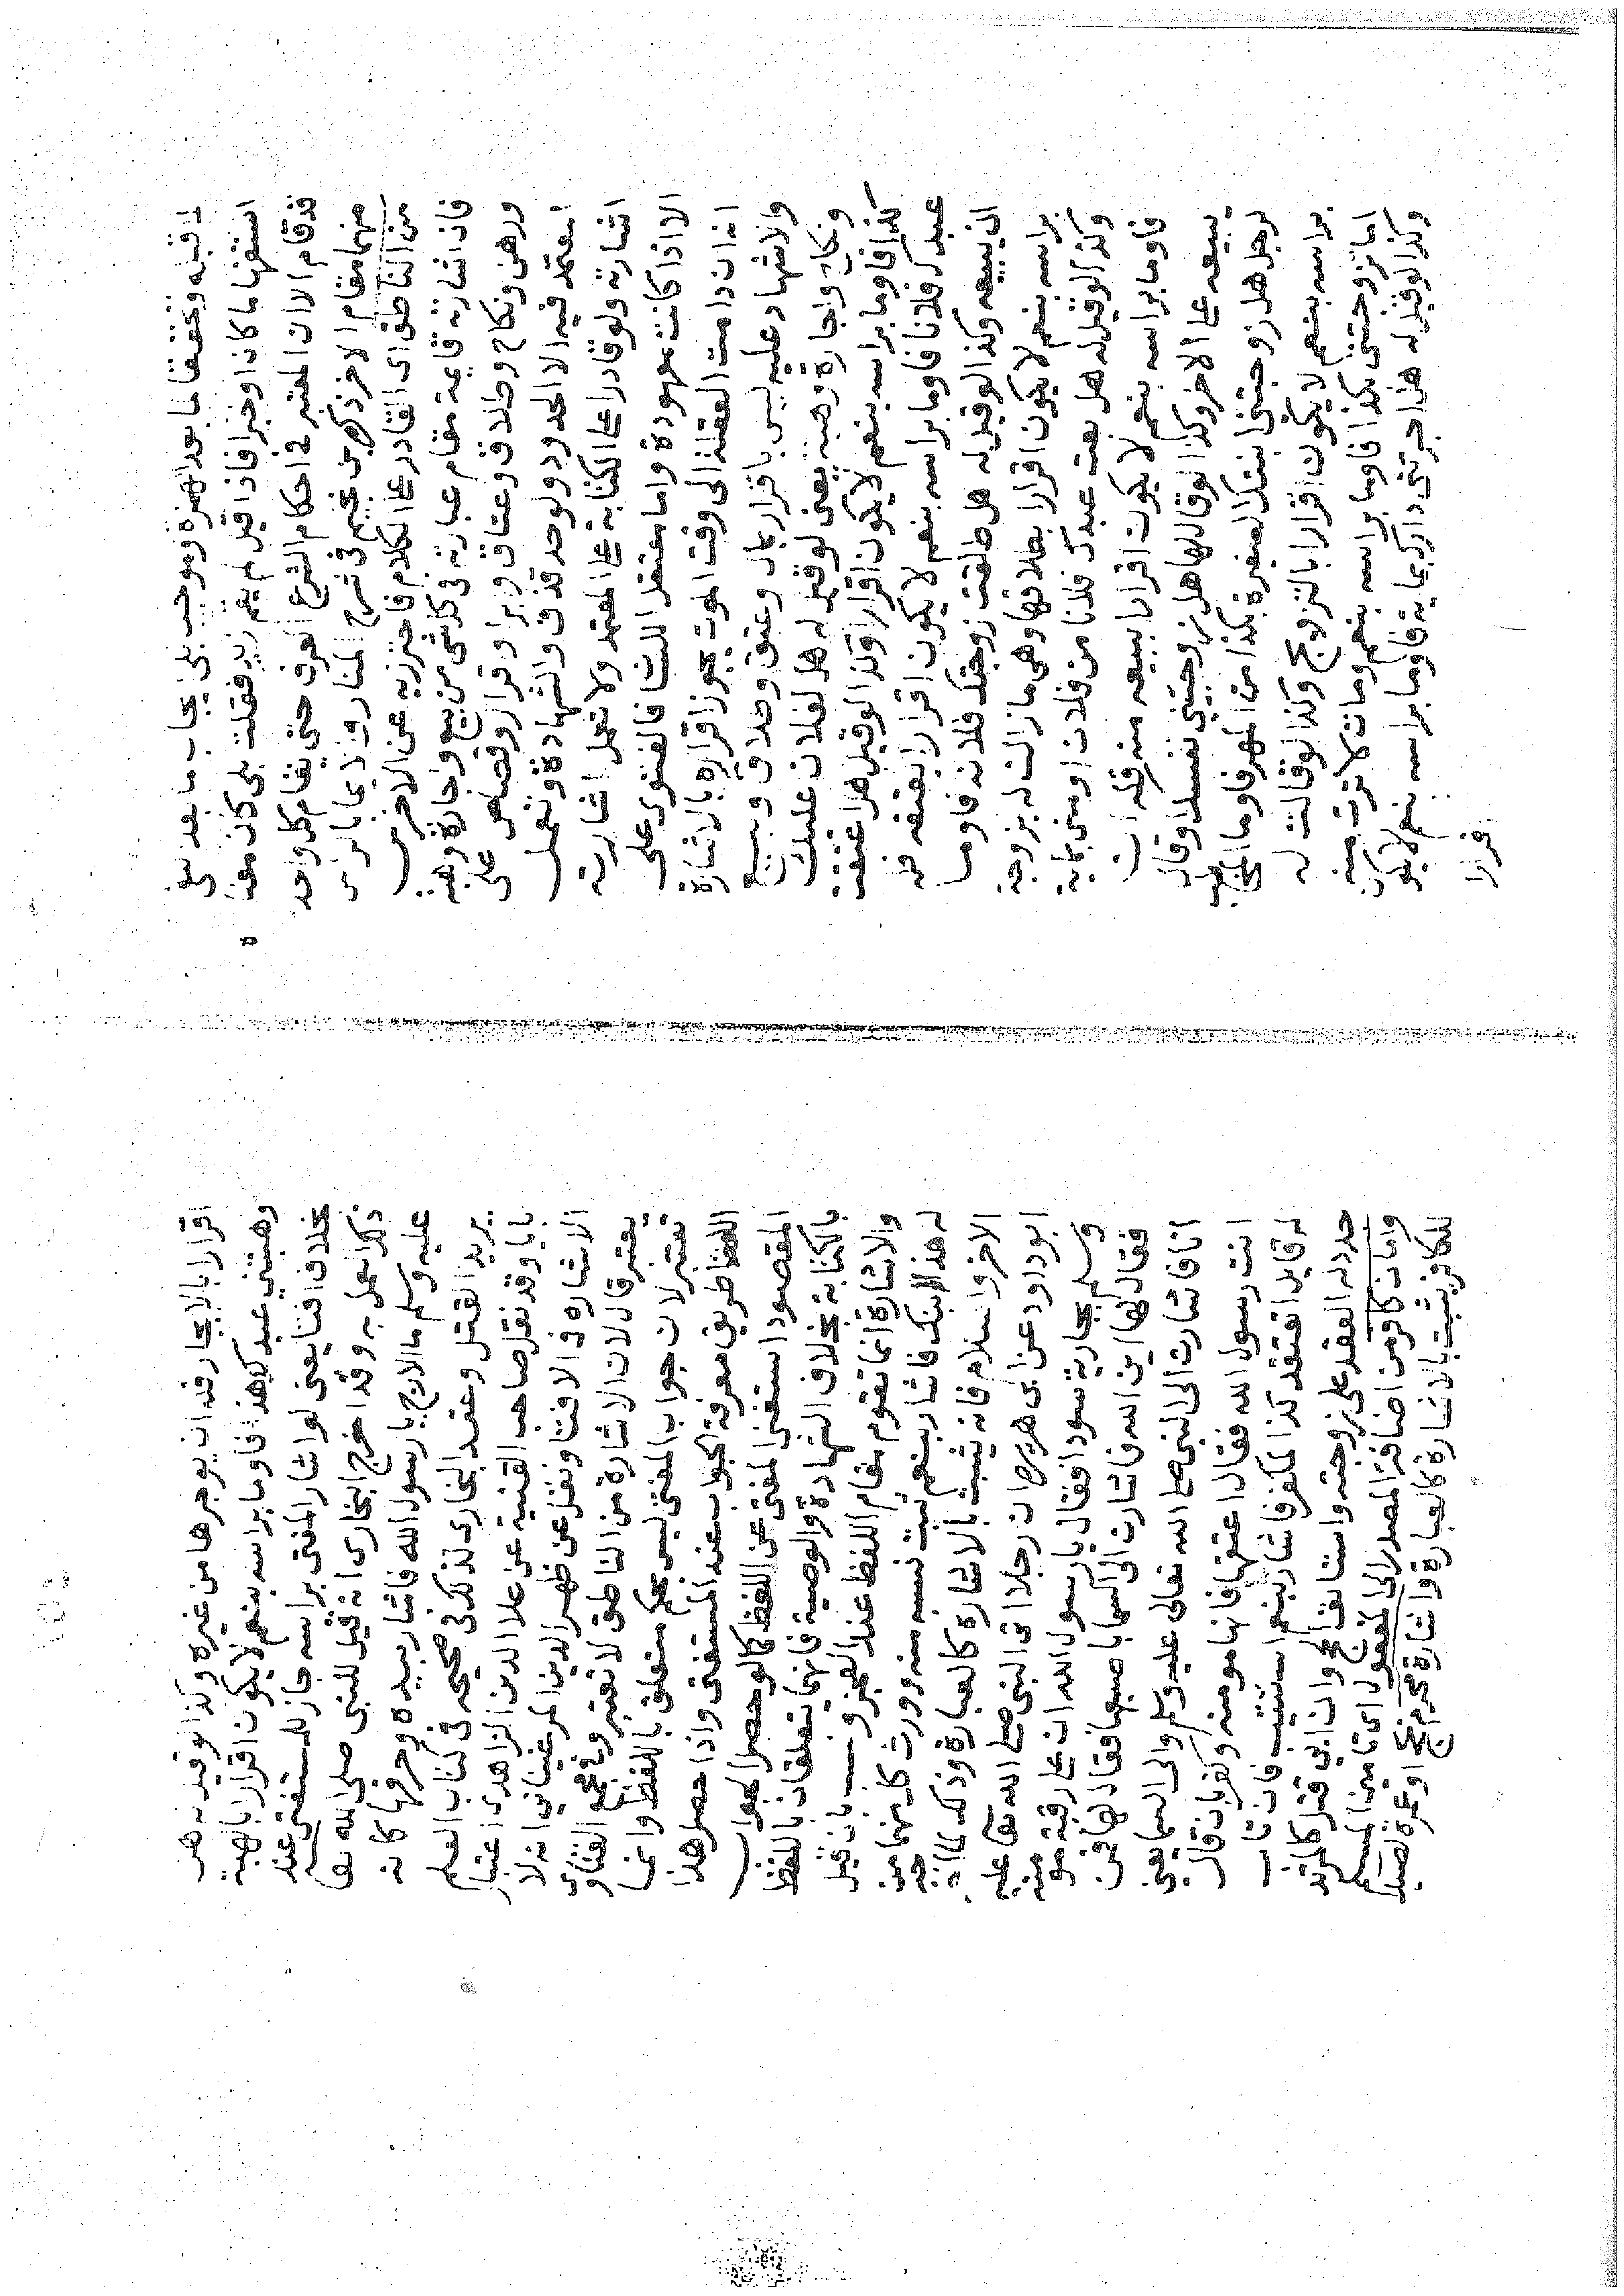 لما قبله وتحققا لما بعد الهمزة وموجب بلى ايجاب ما بعد نفى
استفهاما كان او خبرا فاذا قيل لم يقم زيد فقلت بلى كان معناه
قد قام الا ان المعتبر فى احكام الشرع العرف حتى يقام كل واحد
منهما مقام الاخر ذكره بن نجيم فى شرح المنار والايما بالراس
من الناطق اى القادر على الكلام فاحترز به عن الاخرس
فان اشارته قايمة مقام عبارته فى كل شى من بيع واجارة وهبة
ورهن ونكاح وطلاق وعتاق وابرا واقرار وقصاص على
المعتمد فيه الا الحدود ولو حد قذف والشهادة وتعمل
اشارته ولو قادرا على الكتابة على المعتمد ولا تعمل اشارته
الا اذا كانت معهودة واما معتقل اللسان فالفتوى على
انه ان دامت العقلة الى وقت الموت يجوز اقراره بالاشارة
والاشهاد عليه ليس باقرار بمال وعتق وطلاق وبيع
ونكاح واجارة وهبة يعنى لو قيل له هل لفلان عليك
كذا فاوما براسه بنعم لا يكون اقرارا وكذا لو قيل هل اعتقت
عبدك فلانا فاوما براسه بنعم لا يكون اقرارا بعتقه فله
ان يبيعه وكذا لو قيل له هل طلقت زوجتك فلانه فاوما
براسه بنعم لا يكون اقرارا بطلاقها وهى ما زالت له بزوجة
وكذا لو قيل له هل بعت عبدك فلانا من فلان او منى بماية
فاوما براسه بنعم لا يكون اقرارا ببيعه منه فله ان
يبيعه على الاخر وكذا لو قال لها هل زوجتينى نفسك او قال
لرجل هل زوجتنى ابنتك الصغيرة بكذا من المهر فاوما المخاطب
براسه بنعم لا يكون اقرارا بالتزويج وكذا لو قالت له
اما تزوجتنى بكذا فاوما براسه بنعم ومات لا ترث منه
وكذا لو قيل له هل اجرتنى دارك بماية فاوما براسه بنعم لا يكون
اقرارا
اقرارا بالايجار فله ان يوجرها من غيره وكذا لو قيل له هل
وهبتنى عبدك هذا فاوما براسه بنعم لا يكون اقرارا بالهبة
بخلاف افتا يعنى لو اشار المفتى براسه جاز للمستفتى عند
ذلك العمل به وقد اخرج البخارى انه قيل للنبى صلى الله تعا
عليه وسلم ما الهرج يا رسول الله فاشار بيده وحرفها كانه
يريد القتل وعقد البخارى لذلك فى صحيحه فى كتاب العلم
بابا وقد نقل صاحب القنية عن علا الدين الزاهدى اعتبار
الاشارة فى الافتا ونقل عن ظهير الدين المرغينانى انه لا
يعتبر قال لان الاشارة من الناطق لا تعتبر وفى مجمع الفتاوى
تعتبر لان جواب المفتى ليس بحكم متعلق باللفظ وانما
اللفظ طريق معرفة الجواب عند المستفتى واذا حصل هذا
المقصود استغنى المفتى عن اللفظ كما لو حصل الجواب
بالكتابة بخلاف الشهادة والوصية فانهما يتعلقان باللفظ
والاشارة انما تقوم مقام اللفظ عند العجز ونسب بان قيل
له هذا ابنك فاشار بنعم ثبت نسبه منه وورث كل منهما من
الاخر واسلام فانه يثبت بالاشارة كالعبارة وذلك لما اخرجه
ابو داود عن ابى هريرة ان رجلا اتى النبى صلى الله تعا عليه
وسلم بجارية سودا فقال يا رسول الله ان على رقبة مومنة
فقال لها اين الله فاشارت الى السما باصبعها فقال لها فمن
انا فاشارت الى النبى صلى الله تعالى عليه وسلم والى السما يعنى
انت رسول الله فقال اعتقها فانها مومنة وكفر بان قال
له قايل اتعتقد كذا المكفر فاشار بنعم استتيب فان تاب
جدد له العقد على زوجته واستانف الحج وان ابى قتل كالمرتد
وامان كافر من اضافة المصدر الى المفعول اى تامين المسلم
للكافر يثبت بالاشارة كالعبارة واشارة محرم بحج او عمرة لصيد